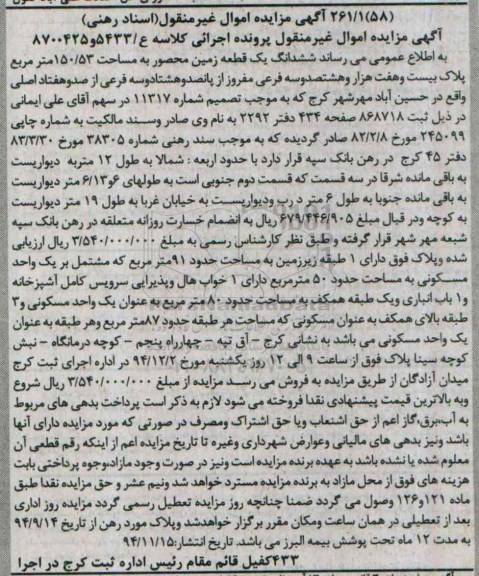 (۵۸)۲۶۱/۱ آگهی مزایده اموال غیرمنقول(اسناد رهنی)
آگهی مزایده اموال غیرمنقول پرونده اجرائی کلاسه ع/۵۴۳۳و۸۷۰۰۴۲۵
به اطلاع عمومی می رساند ششدانگ یک قطعه زمین محصور به مساحت ۱۵۰/۵۳متر مربع
پلاک بیست وهفت هزار وهشتصدوسه فرعی مفروز از پانصدوهشتادوسه فرعی از صدوهفتاد اصلی
واقع در حسین آباد مهرشهر کرج که به موجب تصمیم شماره ۱۱۳۱۷ در سهم آقای علی ایمانی
در ذیل ثبت ۸۶۸۷۱۸ صفحه ۴۳۴ دفتر ۲۲۹۲ به نام وی صادر وسـند مالکیت به شماره چاپی
۲۴۵۰۹۹ مورخ ۸۲/۲/۸ صادر گردیده که به موجب سند رهنی شماره ۳۸۳۰۵ مورخ ۸۳/۳/۳۰
دفتر ۴۵ کرج در رهن بانک سپه قرار دارد با حدود اربعه : شمالا به طول ۱۲ متربه دیواریست
به باقی مانده شرقا در سه قسمت که قسمت دوم جنوبی است به طولهای ۶و۶/۱۳ متر دیواریست
به باقی مانده جنوبا به طول ۶ متر د رب ودیواریسـت به خیابان غربا به طول ۱۹ متر دیواریست
به کوچه ودر قبال مبلغ ۶۷۹/۴۴۶/۹۰۵ ریال به انضمام خسارت روزانه متعلقه در رهن بانک سپه
شبعه مهر شهر قرار گرفته و طبق نظر کارشناس رسمی به مبلغ ۳/۵۴۰/۰۰۰/۰۰۰ ریال ارزیابی
شده وپلاک فوق دارای ۱ طبقه زیرزمین به مساحت حدود ۹۱متر مربع که مشتمل بر یک واحد
مسـکونی به مساحت حدود ۵۰ مترمربع دارای ۱ خواب هال وپذیرایی سرویس کامل آشپزخانه
و۱ باب انباری ویک طبقه همکف به مساحت حدود ۸۰ متر مربع به عنوان یک واحد مسکونی و۳
طبقه بالای همکف به عنوان مسکونی که مساحت هر طبقه حدود ۸۷متر مربع وهر طبقه به عنوان
یک واحد مسکونی می باشد به نشانی کرج – آق تپه – چهارراه پنجم – کوچه درمانگاه – نبش
کوچه سینا پلاک فوق از ساعت ۹ الی ۱۲ روز یکشنبه مورخ ۹۴/۱۲/۲ در اداره اجرای ثبت کرج
میدان آزادگان از طریق مزایده به فروش می رسـد مزایده از مبلغ ۳/۵۴۰/۰۰۰/۰۰۰ ریال شروع
وبه بالاترین قیمت پیشنهادی نقدا فروخته می شود لازم به ذکر است پرداخت بدهی های مربوط
به آب،برق،گاز اعم از حق انشعاب ویا حق اشتراک ومصرف در صورتی که مورد مزایده دارای آنها
باشد ونیز بدهی های مالیاتی وعوارض شهرداری وغیره تا تاریخ مزایده اعم از اینکه رقم قطعی آن
معلوم شده یا نشده باشد به عهده برنده مزایده است ونیز در صورت وجود مازاد،وجوه پرداختی بابت
هزینه های فوق از محل مازاد به برنده مزایده مسترد خواهد شد ونیم عشر و حق مزایده نقدا طبق
ماده ۱۲۱و۱۲۶ وصول می گردد ضمنا چنانچه روز مزایده تعطیل رسمی گردد مزایده روز اداری
بعد از تعطیلی در همان ساعت ومکان مقرر برگزار خواهدشد وپلاک مورد رهن از تاریخ ۹۴/۹/۱۴
به مدت ۱۲ ماه تحت پوشش بیمه البرز می باشد. تاریخ انتشار:۹۴/۱۱/۱۵
۴۳۳کفیل قائم مقام رئیس اداره ثبت کرج در اجرا